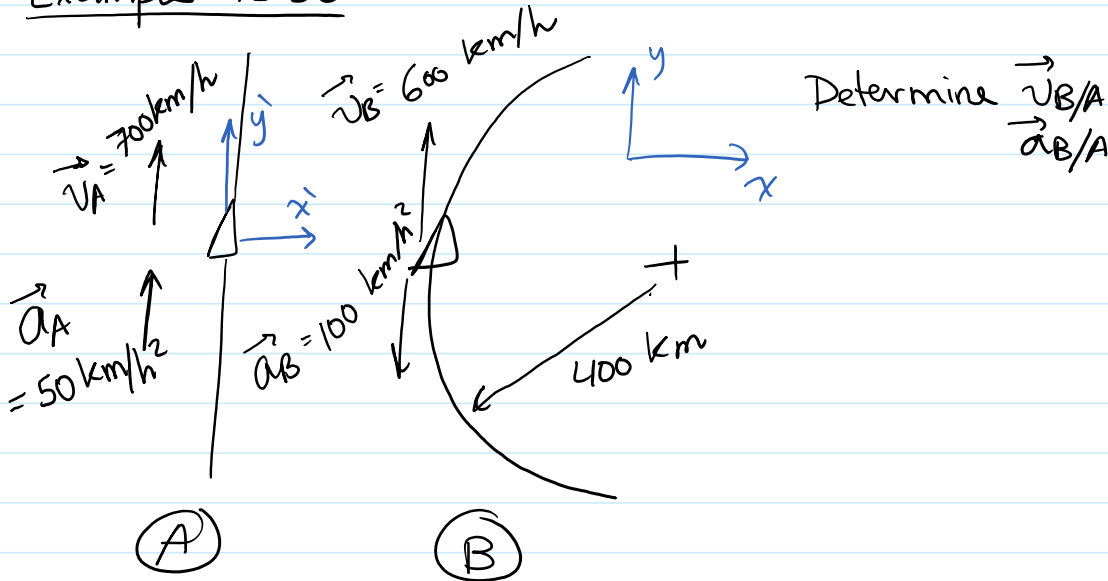 v⃗A = 700 km/h
y`
x`
a⃗A
= 50 km/h²
v⃗B = 600 km/h
a⃗B = 100 km/h²
400 km
y
x
Determine v⃗B/A
a⃗B/A
A
B